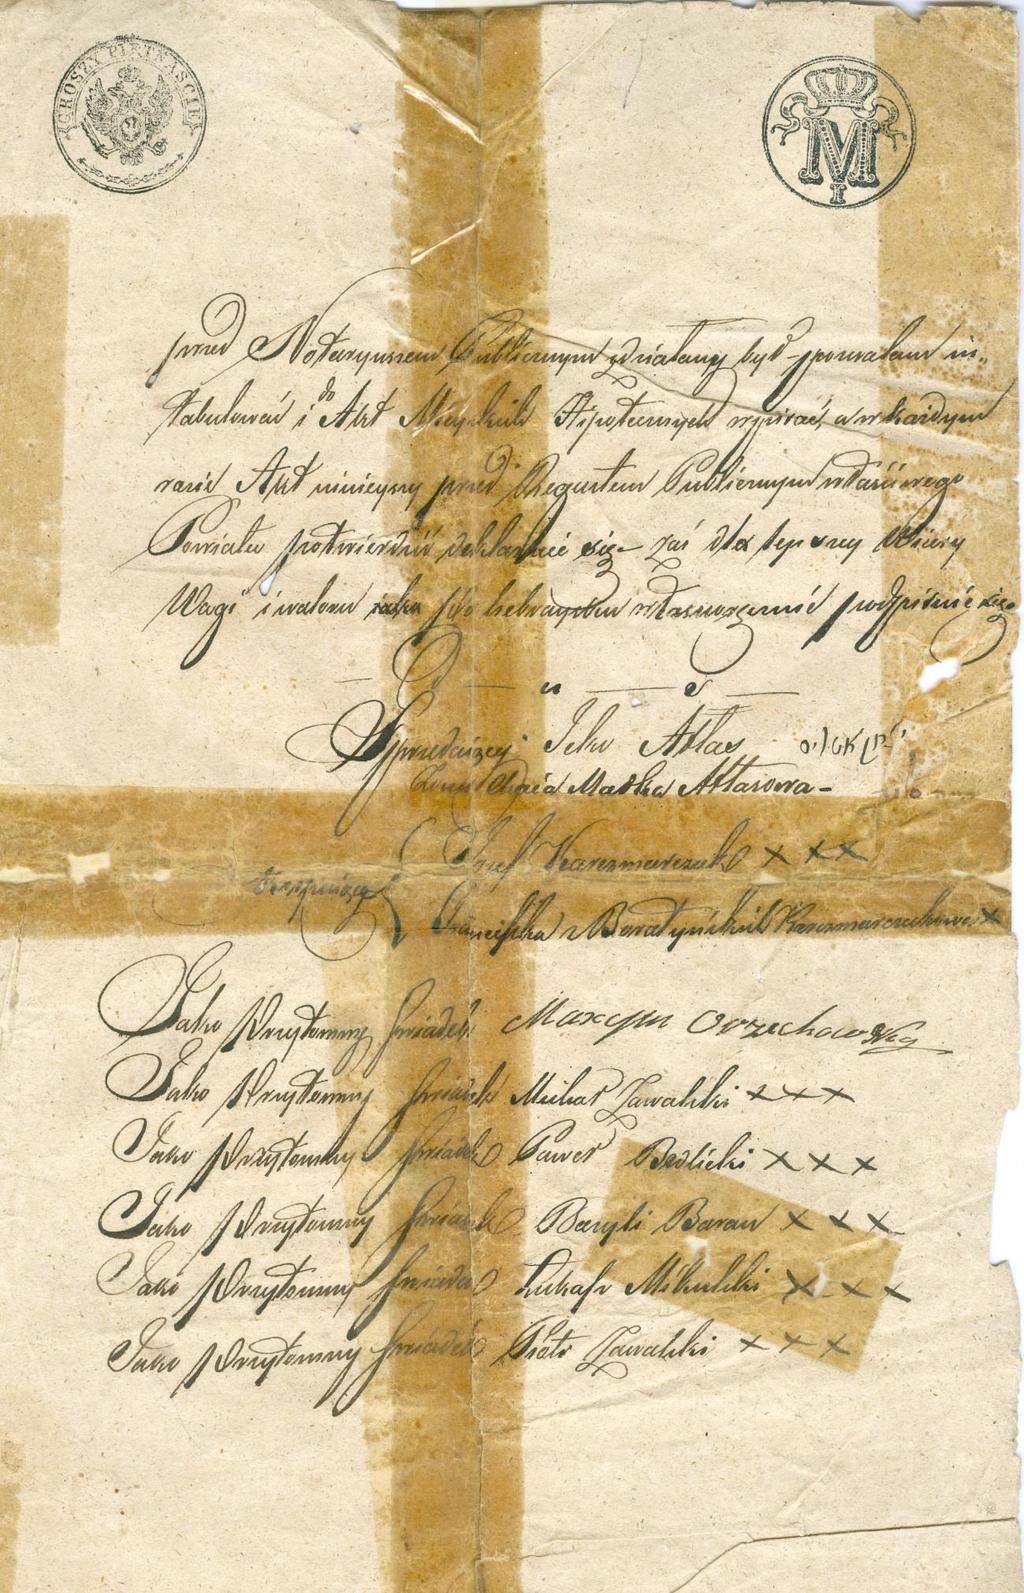 GROSZY PIĘTNAŚCIE
M
I
przed Notaryuszem Publicznym zdziałany był – pozwalam in„
tabulować i do Akt Mieyskich Hipotecznych wpisać, a w każdym
razie Akt ninieyszy przed Regentem Publicznym właściwego
Powiatu potwierdzić deklaruie się – zaś dla lepszey Wiary
Wagi i waloru własnoręcznie podpisuie się
Sprzedaiący Icko Atlas
Maśka Atlasowa –
Józef Karczmarczuk x x x
Franciszka z Baratyńskich Karczmarczukowa x
Jako Przytomny Świadek Marcyn Orzechowsky
Jako Przytomny Świadek Michał Zawalski x x x
Jako Przytomny Świadek Paweł Bedlicki x x x
Jako Przytomny Świadek Bazyli Baran x x x
Jako Przytomny Świadek Łukasz Mikulski x x x
Jako Przytomny Świadek Piotr Zawalski x x x